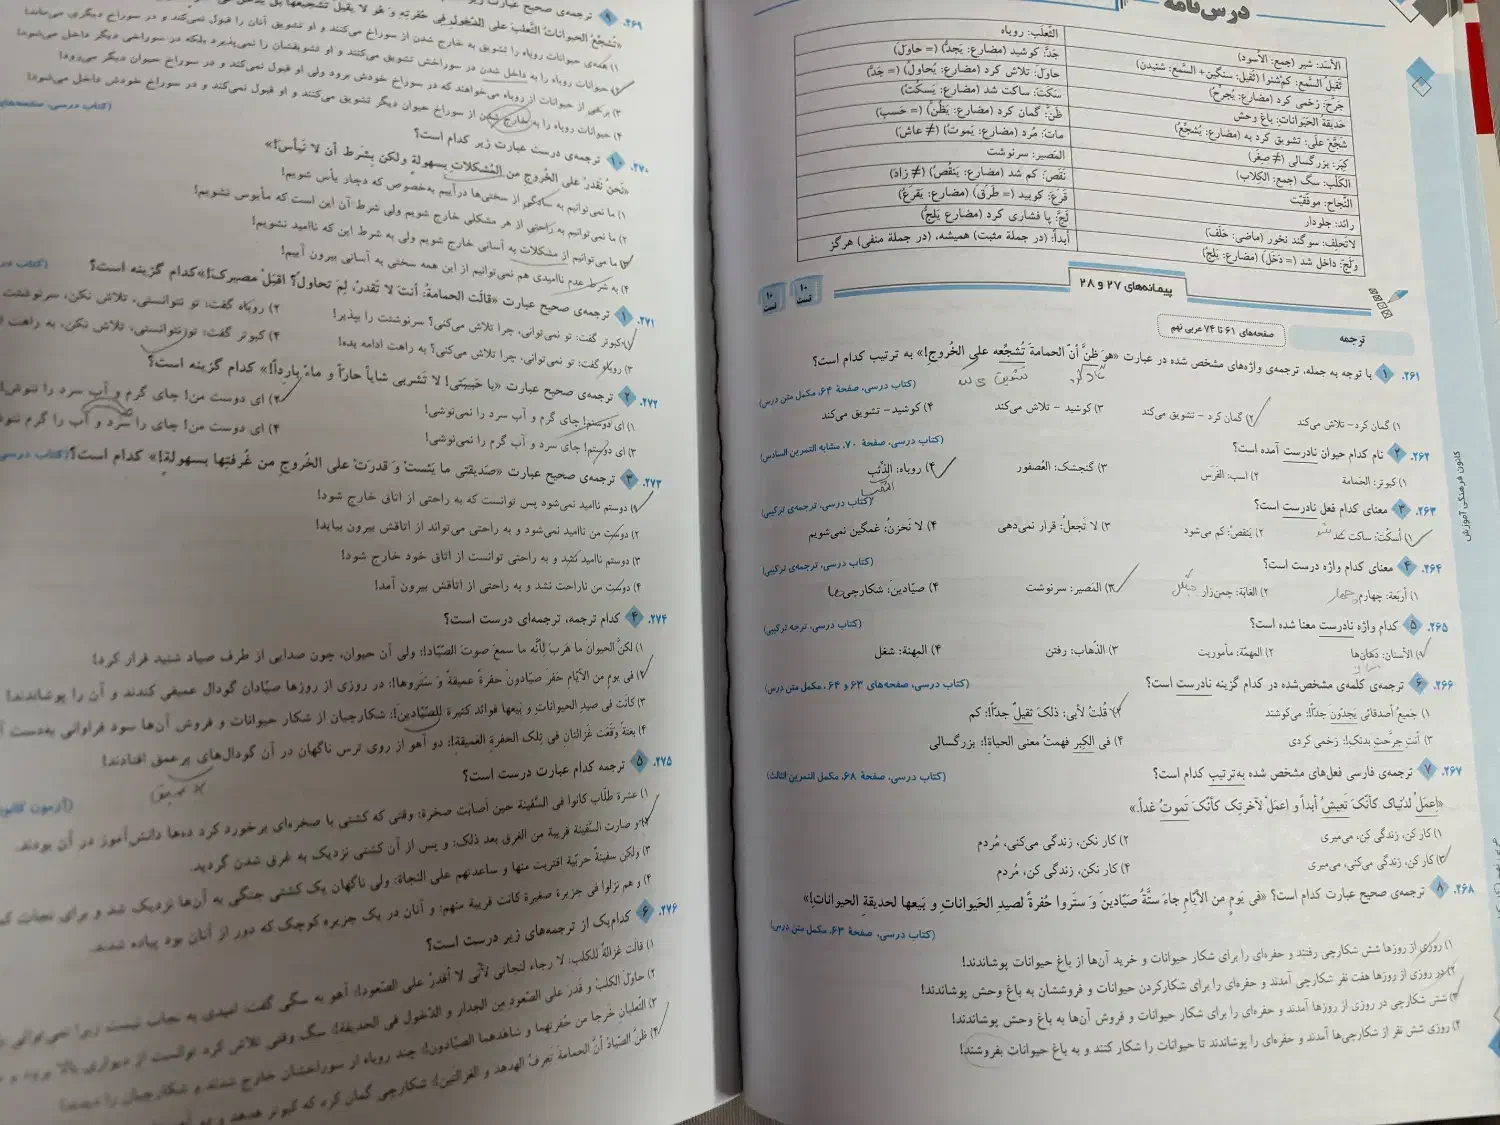 درس‌نامه
الأسَد: شیر (جمع: الأسود)
الثَّعلَب: روباه
ثَقیلُ السَّمع: کم‌شنوا (ثَقیل: سنگین + السَّمع: شنیدن)
جَدَّ: کوشید (مضارع: یَجِدُّ) (= حاوَلَ)
جَرَحَ: زخمی کرد (مضارع: یَجرَحُ)
حاوَلَ: تلاش کرد (مضارع: یُحاوِلُ) (= جَدَّ)
حَدیقة الحَیَوانات: باغ وحش
سَکَتَ: ساکت شد (مضارع: یَسکُتُ)
شَجَّعَ عَلی: تشویق کرد به (مضارع: یُشَجِّعُ)
ظَنَّ: گمان کرد (مضارع: یَظُنُّ) (= حَسِبَ)
کِبَر: بزرگسالی (≠ صِغَر)
ماتَ: مُرد (مضارع: یَموتُ) (≠ عاشَ)
الکَلب: سگ (جمع: الکِلاب)
المَصیر: سرنوشت
النَّجاح: موفّقیّت
نَقَصَ: کم شد (مضارع: یَنقُصُ) (≠ زادَ)
رائد: جلودار
قَرَعَ: کوبید (= طَرَقَ) (مضارع: یَقرَعُ)
لاتَحلِف: سوگند نخور (ماضی: حَلَفَ)
لَجَّ: پا فشاری کرد (مضارع یَلِجُّ)
وَلَجَ: داخل شد (= دَخَلَ) (مضارع: یَلِجُ)
أبداً: (در جملهٔ مثبت) همیشه، (در جملهٔ منفی) هرگز
پیمانه‌های ۲۷ و ۲۸
۱۰ تست
۱۰ تست
ترجمه
صفحه‌های ۶۱ تا ۷۴ عربی نهم
۲۶۱. ۱ با توجه به جمله، ترجمه‌ی واژه‌های مشخص شده در عبارت «هوَ ظَنَّ أنَّ الحمامةَ تُشَجِّعه علی الخُروج!» به ترتیب کدام است؟
(کتاب درسی، صفحهٔ ۶۴، مکمل متن درس)
۱) گمان کرد- تلاش می‌کند
۲) گمان کرد - تشویق می‌کند
۳) کوشید - تلاش می‌کند
۴) کوشید- تشویق می‌کند
۲۶۲. ۲ نام کدام حیوان نادرست آمده است؟
(کتاب درسی، صفحهٔ ۷۰، مشابه التمرین السادس)
۱) کبوتر: الحَمامة
۲) اسب: الفَرَس
۳) گنجشک: العُصفور
۴) روباه: الذِّئب
۲۶۳. ۳ معنای کدام فعل نادرست است؟
(کتاب درسی، ترجمه‌ی ترکیبی)
۱) اُسکُت: ساکت شد
۲) یَنقصُ: کم می‌شود
۳) لا تَجعلُ: قرار نمی‌دهی
۴) لا نَحزنُ: غمگین نمی‌شویم
۲۶۴. ۴ معنای کدام واژه درست است؟
(کتاب درسی، ترجمه‌ی ترکیبی)
۱) أربَعة: چهارم
۲) الغابَة: چمن‌زار
جنگل
۳) المَصیر: سرنوشت
۴) صیّادینَ: شکارچی
۲۶۵. ۵ کدام واژه نادرست معنا شده است؟
(کتاب درسی، ترجه ترکیبی)
۱) الأسنان: دهان‌ها
۲) المهمّة: مأموریت
۳) الذَّهاب: رفتن
۴) المهنة: شغل
۲۶۶. ۶ ترجمه‌ی کلمه‌ی مشخص‌شده در کدام گزینه نادرست است؟
(کتاب درسی، صفحه‌های ۶۳ و ۶۴، مکمل متن درس)
۱) جَمیعُ أصدقائی یَجِدّونَ جدّاً!: می‌کوشند
۲) قُلتُ لأبی: ذلکَ ثَقیلٌ جدّاً!: کم
۳) أنتِ جرَّحتِ یدَکِ!: زخمی کردی
۴) فی الکِبَر فهمتُ معنی الحیاة!: بزرگسالی
۲۶۷. ۷ ترجمه‌ی فارسی فعل‌های مشخص شده به‌ترتیب کدام است؟
(کتاب درسی، صفحهٔ ۶۸، مکمل التمرین الثالث)
«اِعمَلْ لدُنیاک کأنَّکَ تَعیشُ أبداً و اعمَلْ لآخرتِک کأنَّکَ تَموتُ غداً.»
۱) کار کن، زندگی کن، می‌میری
۲) کار نکن، زندگی می‌کنی، مُردم
۳) کار کن، زندگی می‌کنی، می‌میری
۴) کار نکن، زندگی کن، مُردم
۲۶۸. ۸ ترجمه‌ی صحیح عبارت کدام است؟ «فی یَومٍ من الأیّامِ جاءَ ستَّةُ صَیّادینَ وَ سَتَروا حُفرةً لصیدِ الحَیَواناتِ و بَیعها لحدیقةِ الحیوانات!»
(کتاب درسی، صفحهٔ ۶۳، مکمل متن درس)
۱) روزی از روزها شش شکارچی رفتند و حفره‌ای را برای شکار حیوانات و خرید آن‌ها از باغ حیوانات پوشاندند!
۲) در روزی از روزها هفت نفر شکارچی آمدند و حفره‌ای را برای شکارکردن حیوانات و فروششان به باغ وحش پوشاندند!
۳) شش شکارچی در روزی از روزها آمدند و حفره‌ای را برای شکار حیوانات و فروش آن‌ها به باغ وحش پوشاندند!
۴) روزی شش نفر از شکارچی‌ها آمدند و حفره‌ای را پوشاندند تا حیوانات را شکار کنند و به باغ حیوانات بفروشند!
کانون فرهنگی آموزش
۲۶۹. ۹ ترجمه‌ی صحیح عبارت
«تُشَجِّعُ الحیواناتُ الثَّعلبَ علی الدّخولِ فی حُفرتِهِ و هُوَ لا یقبلُ تَشجیعَها بل
۱) همه‌ی حیوانات روباه را تشویق به خارج شدن از سوراخ می‌کنند و او تشویق آنان را قبول نمی‌کند و در سوراخ دیگری می‌ماند!
۲) حیوانات روباه را به داخل شدن در سوراخش تشویق می‌کنند و او تشویقشان را نمی‌پذیرد بلکه در سوراخی دیگر داخل می‌شود!
۳) برخی از حیوانات از روباه می‌خواهند که در سوراخ خودش برود ولی او قبول نمی‌کند و در سوراخ حیوان دیگر می‌رود!
۴) حیوانات روباه را به خارج شدن از سوراخ حیوان دیگر تشویق می‌کنند و او قبول نمی‌کند و در سوراخ خودش داخل می‌شود!
(کتاب درسی، صفحه‌های
۲۷۰. ۱۰ ترجمه‌ی درست عبارت زیر کدام است؟
«نَحنُ نَقدرُ علی الخُروج من المُشکلات بِسهولةٍ ولکن بِشَرط أن لا نَیأسَ!»
۱) ما نمی‌توانیم به سادگی از سختی‌ها درآییم به‌خصوص که دچار یأس شویم!
۲) ما نمی‌توانیم به راحتی از هر مشکلی خارج شویم ولی شرط آن این است که مأیوس نشویم!
۳) ما می‌توانیم از مشکلات به آسانی خارج شویم ولی به شرط این که ناامید نشویم!
۴) به شرط عدم ناامیدی هم نمی‌توانیم از این همه سختی به آسانی بیرون آییم!
۲۷۱. ۱ ترجمه‌ی صحیح عبارت «قالَت الحمامةُ: أنتَ لا تَقدرُ، لِمَ تحاولُ؟ اقبَلْ مصیرکَ!» کدام گزینه است؟
۱) کبوتر گفت: تو نمی‌توانی، چرا تلاش می‌کنی؟ سرنوشتت را بپذیر!
۲) روباه گفت: تو نتوانستی، تلاش نکن، سرنوشتت
۳) روباه گفت: تو نمی‌توانی، چرا تلاش می‌کنی؟ به راهت ادامه بده!
۴) کبوتر گفت: تو نتوانستی، تلاش نکن، به راهت
۲۷۲. ۲ ترجمه‌ی صحیح عبارت «یا حَبیبَتی! لا تَشرَبی شایاً حارّاً و ماءً بارداً!» کدام گزینه است؟
۱) ای دوستم! چای گرم و آب سرد را نمی‌نوشی!
۲) ای دوست من! چای گرم و آب سرد را ننوش!
۳) ای دوستم! چای سرد و آب گرم را نمی‌نوشی!
۴) ای دوست من! چای را سرد و آب را گرم
۲۷۳. ۳ ترجمه‌ی صحیح عبارت «صَدیقتی ما یَئسَتْ وَ قدرَتْ علی الخُروج مِن غُرفتِها بسهولة!» کدام است؟
(کتاب درسی
۱) دوستم ناامید نمی‌شود پس توانست که به راحتی از اتاق خارج شود!
۲) دوست من ناامید نمی‌شود و به راحتی می‌تواند از اتاقش بیرون بیاید!
۳) دوستم ناامید نشد و به راحتی توانست از اتاق خود خارج شود!
۴) دوست من ناراحت نشد و به راحتی از اتاقش بیرون آمد!
۲۷۴. ۴ کدام ترجمه، ترجمه‌ای درست است؟
۱) لکنَّ الحیوانَ ما هَربَ لأنَّه ما سمعَ صوتَ الصّیّاد!: ولی آن حیوان، چون صدایی از طرف صیاد شنید فرار کرد!
۲) فی یومٍ من الأیّامِ حَفَر صیّادون حفرةً عمیقةً و سَتَروها!: در روزی از روزها صیّادان گودال عمیقی کندند و آن را پوشاندند!
۳) کانَت فی صیدِ الحیواناتِ و بَیعها فوائد کثیرة للصّیّادین!: شکارچیان از شکار حیوانات و فروش آن‌ها سود فراوانی به‌دست
۴) بغتةً وَقَعَت غَزالتانِ فی تِلک الحفرةِ العَمیقة!: دو آهو از روی ترس ناگهان در آن گودال‌های پرعمق افتادند!
۲۷۵. ۵ ترجمه کدام عبارت درست است؟
(آزمون کانون
۱) عشرة طلّاب کانوا فی السَّفینة حین أصابَت صخرة: وقتی که کشتی با صخره‌ای برخورد کرد ده‌ها دانش‌آموز در آن بودند.
۲) و صارت السَّفینة قریبة من الغرق بعد ذلک: و پس از آن کشتی نزدیک به غرق شدن گردید.
۳) ولکن سفینةٌ حربّیة اقتربت منها و ساعدتهم علی النجاة: ولی ناگهان یک کشتی جنگی به آن‌ها نزدیک شد و برای نجات
۴) و هم نزلوا فی جزیرة صغیرة کانت قریبة منهم: و آنان در یک جزیره کوچک که دور از آنان بود پیاده شدند.
۲۷۶. ۶ کدام‌یک از ترجمه‌های زیر درست است؟
۱) قالَت غزالةٌ للکلب: لا رجاء لنجاتی لأنّی لا أقدرُ علی الصّعود!: آهو به سگی گفت: امیدی به نجات نیست، زیرا نمی‌توانی
۲) حاولَ الکلبُ و قدرَ علی الصّعود مِن الجدارِ و الدّخولِ فی الحدیقة!: سگ وقتی تلاش کرد توانست از دیواری بالا برود و
۳) الثّعلبانِ خَرجا من حُفرتِهما و شاهَدهما الصّیّادون!: چند روباه از سوراخشان خارج شدند و شکارچیان را دیدند!
۴) ظنَّ الصّیّادُ أنَّ الحمامةَ تعرفُ الهدهدَ و الغزالتین!: شکارچی گمان کرد که کبوتر هدهد و دو